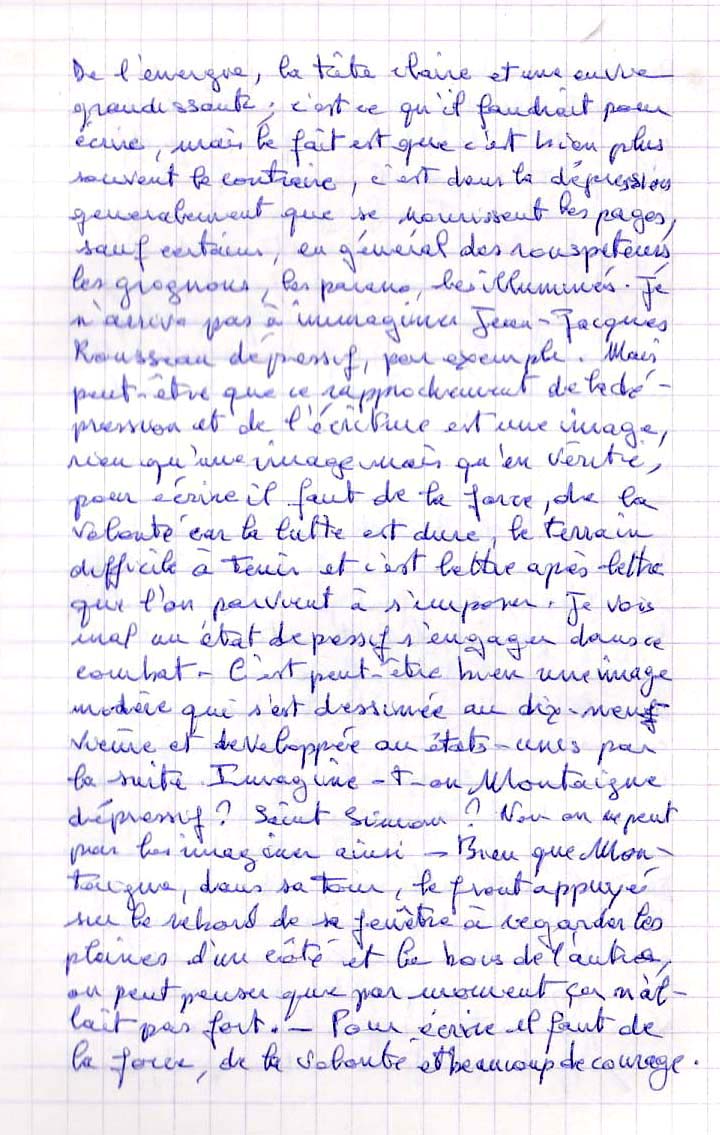 De l'énergie, la tête claire et une envie
grandissante, c'est ce qu'il faudrait pour
écrire, mais le fait est que c'est bien plus
souvent le contraire, c'est dans la dépression
generalement que se nourissent les pages,
sauf certains, en général des rouspeteurs
les grognons, les parano, les illuminés. Je
n'arrive pas à immaginer Jean-Jacques
Rousseau dépressif, par exemple. Mais
peut-être que ce rapprochement de la dé-
pression et de l'écriture est une image,
rien qu'une image mais qu'en vérité,
pour écrire il faut de la force, de la
volonté car la lutte est dure, le terrain
difficile à tenir et c'est lettre après lettre
que l'on parvient à s'imposer. Je vois
mal un état depressif s'engager dans ce
combat - C'est peut-être bien une image
modèle qui s'est dessinée au dix-neuf
vieme et developpée au états-unis par
la suite. Imagine-t-on Montaigne
dépressif? Saint Simon? Non on ne peut
pas les imaginer ainsi - Bien que Mon-
taigne, dans sa tour, le front appuyé
sur le rebord de sa fenêtre à regarder les
plaines d'un côté et le bois de l'autre,
on peut penser que par moment ça n'al-
lait pas fort. - Pour écrire il faut de
la force, de la volonté et beaucoup de courage.